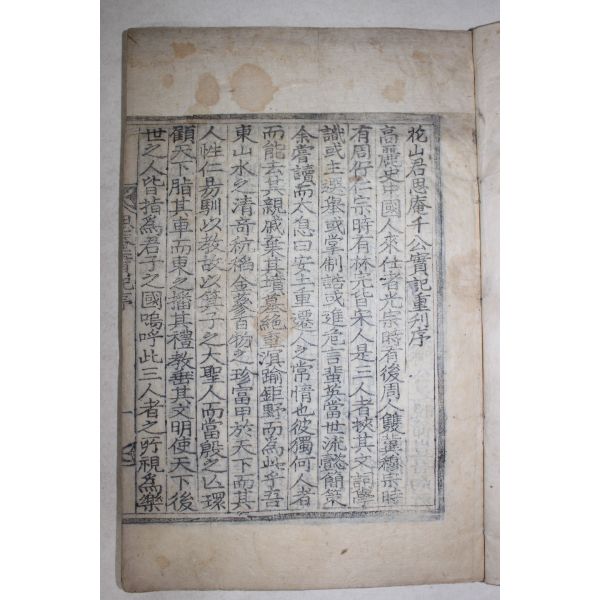 花山君思庵千公實記重刋序
高麗史中國人來仕者光宗時有後周人雙冀穆宗時
有周佇仁宗時有林完皆宋人是三人者挾其文詞學
識或主選舉或掌制誥或進危言蜚英當世流懿簡策
余嘗讀而太息曰安土重遷人之常情也彼獨何人者
而能去其親戚棄其墳墓絶重溟踰鉅野而爲此乎吾
東山水之清奇秔稻金蔘百物之珍富甲於天下而其
人性仁易馴以教故以箕子之大聖人而當殷之亾環
顧天下脂其車而東之播其禮教垂其文明使天下後
世之人皆指爲君子之國嗚呼此三人者之所視爲樂
思庵實記序
一